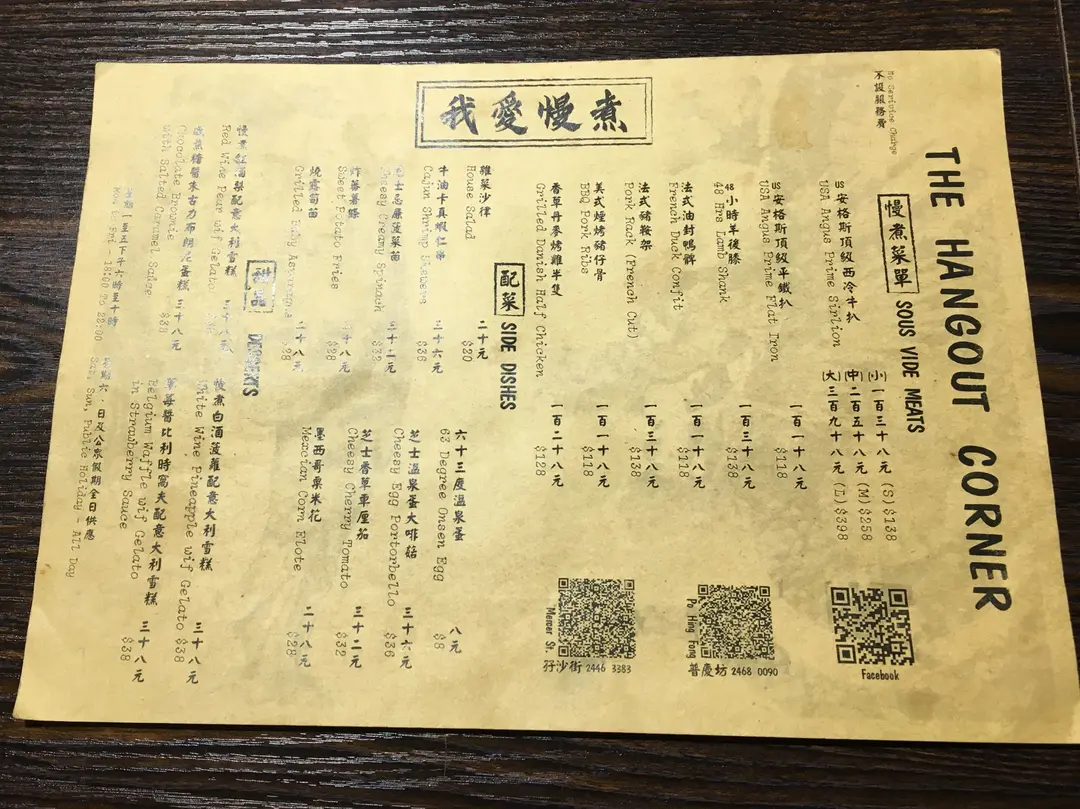 我愛慢煮
THE HANGOUT CORNER
No Serivice Charge
不設服務費
慢煮菜單 SOUS VIDE MEATS
US安格斯頂級西冷牛扒
USA Angus Prime Sirlion
(小) 一百三十八元 (S) $138
(中) 二百五十八元 (M) $258
(大) 三百九十八元 (L) $398
US安格斯頂級平鐵扒 一百一十八元
USA Angus Prime Flat Iron $118
48小時羊後膝 一百三十八元
48 Hrs Lamb Shank $138
法式油封鴨髀 一百一十八元
French Duck Confit $118
法式豬鞍架 一百三十八元
Pork Rack (French Cut) $138
美式煙烤豬仔骨 一百一十八元
BBQ Pork Ribs $118
香草丹麥烤雞半隻 一百二十八元
Grilled Danish Half Chicken $128
配菜 SIDE DISHES
雜菜沙律 二十元
House Salad $20
牛油卡真蝦仁 三十六元
Cajun Shrimp $36
芝士忌廉菠菜苗 三十二元
Cheesy Creamy Spinach $32
炸蕃薯條 二十八元
Sweet Potato Fries $28
燒露筍苗 二十八元
Grilled Baby Asparagus $28
六十三度溫泉蛋 八元
63 Degree Onsen Egg $8
芝士溫泉蛋大啡菇 三十六元
Cheesy Egg Portorbello $36
芝士香草車厘茄 三十二元
Cheesy Cherry Tomato $32
墨西哥粟米花 二十八元
Mexcian Corn Elote $28
甜品 DESSERTS
慢煮紅酒梨配意大利雪糕 三十八元
Red Wine Pear wif Gelato $38
鹹焦糖醬朱古力布朗尼蛋糕 三十八元
Chocolate Brownie
with Salted Caramel Sauce $38
慢煮白酒菠蘿配意大利雪糕 三十八元
White Wine Pineapple wif Gelato $38
草莓醬比利時窩夫配意大利雪糕 三十八元
Belgium Waffle wif Gelato
in Strawberry Sauce $38
星期一至五下午六時至十時
Mon to Fri - 18:00 To 22:00
星期六．日及公眾假期全日供應
Sat, Sun, Public Holiday - All Day
Facebook
Po Hing Fong
普慶坊 2468 0090
Mercer St.
孖沙街 2446 3383